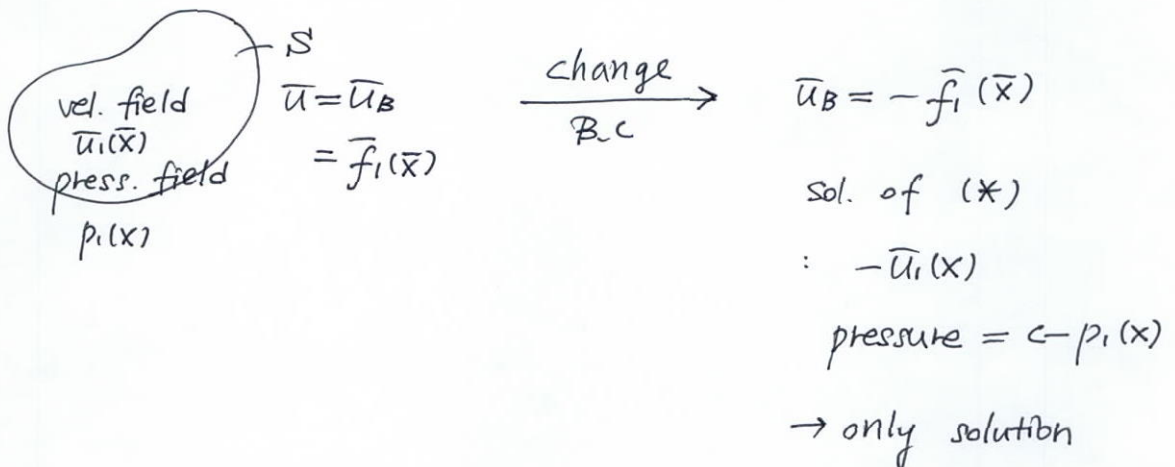 S
vel. field
ū₁(x̄)
press. field
p₁(x)
ū = ū_B
= f̄₁(x̄)
change
B.C
ū_B = - f̄₁(x̄)
sol. of (*)
: - ū₁(x)
pressure = c - p₁(x)
→ only solution